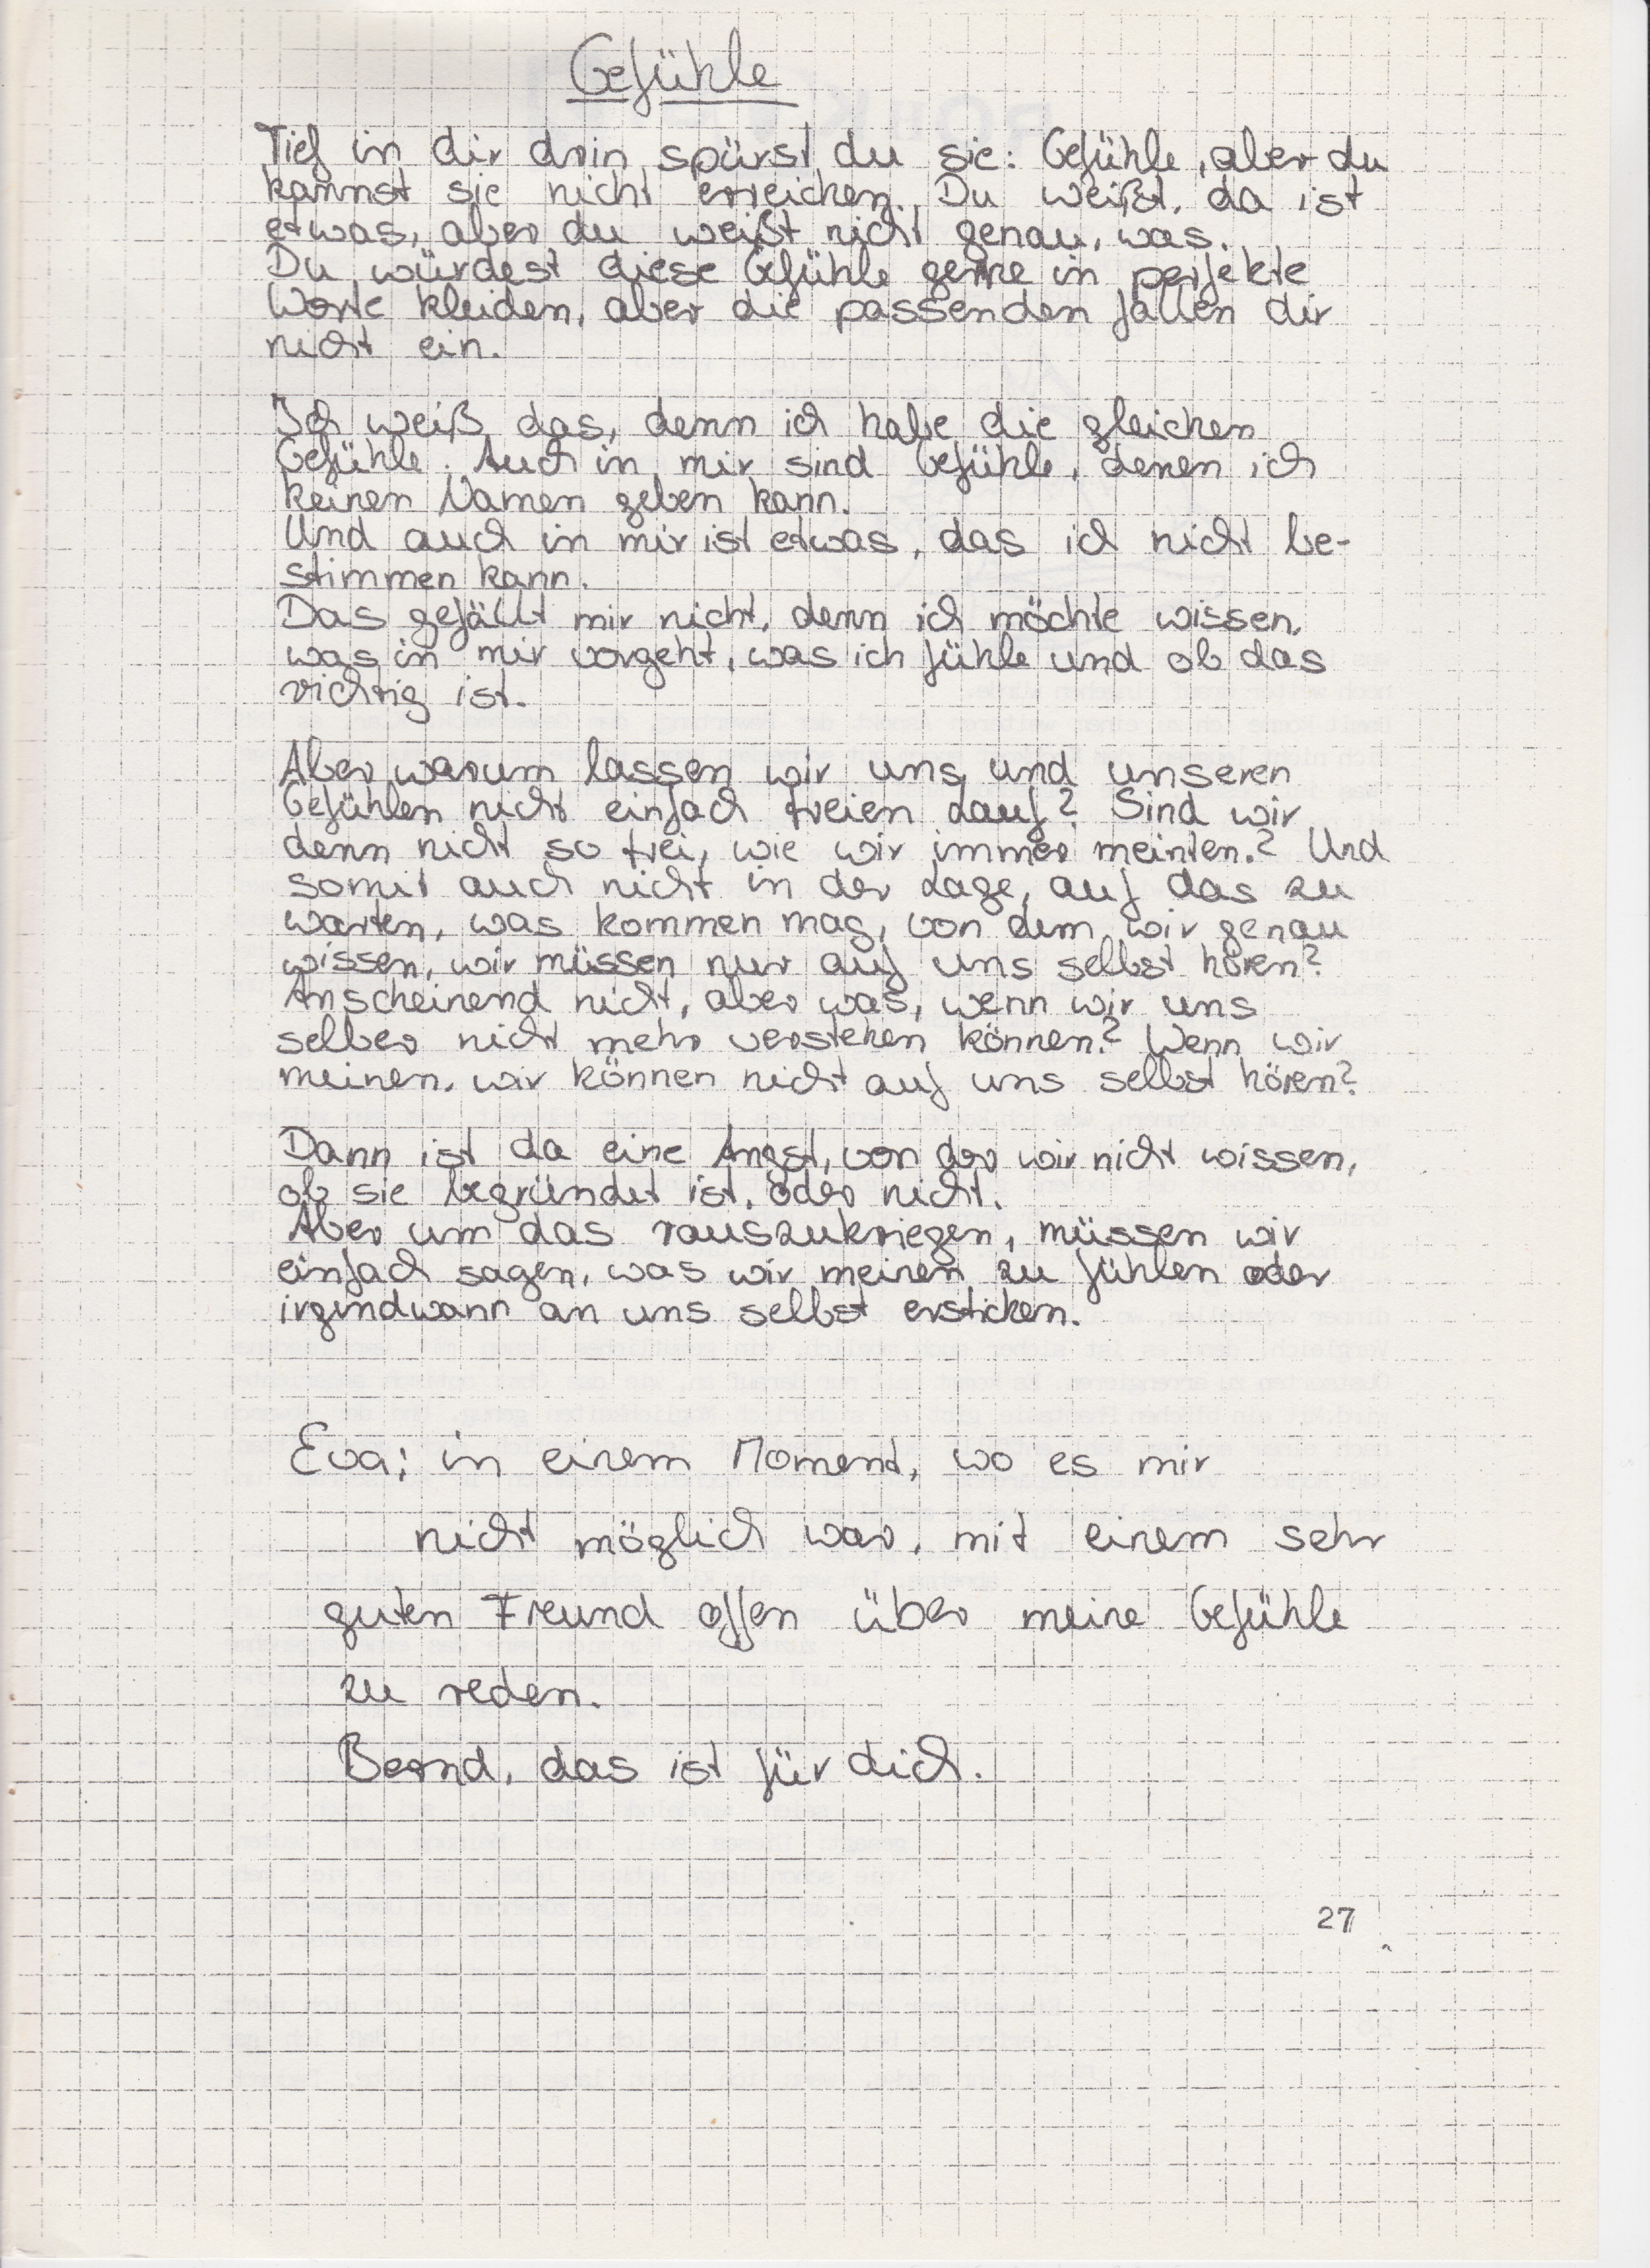 Gefühle
Tief in dir drin spürst du sie: Gefühle, aber du
kannst sie nicht erreichen. Du weißt, da ist
etwas, aber du weißt nicht genau, was.
Du würdest diese Gefühle gerne in perfekte
Worte kleiden, aber die passenden fallen dir
nicht ein.
Ich weiß das, denn ich habe die gleichen
Gefühle. Auch in mir sind Gefühle, denen ich
keinen Namen geben kann.
Und auch in mir ist etwas, das ich nicht be-
stimmen kann.
Das gefällt mir nicht, denn ich möchte wissen,
was in mir vorgeht, was ich fühle und ob das
richtig ist.
Aber warum lassen wir uns und unseren
Gefühlen nicht einfach freien Lauf? Sind wir
denn nicht so frei, wie wir immer meinten? Und
somit auch nicht in der Lage, auf das zu
warten, was kommen mag, von dem wir genau
wissen, wir müssen nur auf uns selbst hören?
Anscheinend nicht, aber was, wenn wir uns
selber nicht mehr verstehen können? Wenn wir
meinen, wir können nicht auf uns selbst hören?
Dann ist da eine Angst, von der wir nicht wissen,
ob sie begründet ist, oder nicht.
Aber um das rauszukriegen, müssen wir
einfach sagen, was wir meinen zu fühlen oder
irgendwann an uns selbst ersticken.
Eva; in einem Moment, wo es mir
nicht möglich war, mit einem sehr
guten Freund offen über meine Gefühle
zu reden.
Bernd, das ist für dich.
27